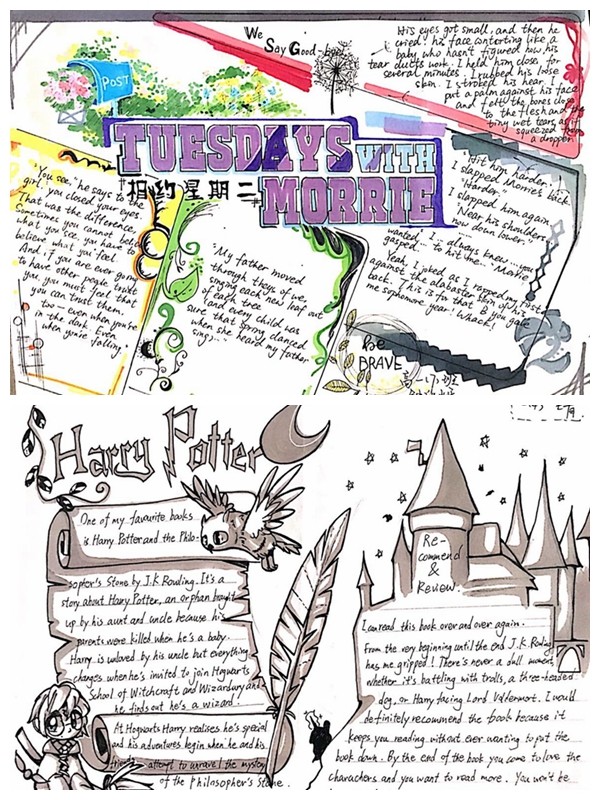 We
Say Good-bye
His eyes got small, and then he
cried! his face contorting like a
baby who hasn't figured how his
tear ductts work. I held him close for
several minutes. I rubbed his loose
skin. I stroked his hear. I
put a palm against his face
and felt the bones close
to the flesh and the
tiny wet tears as if
squeezed from
a dropper.
POST
TUESDAYS WITH
MORRIE
相约星期二
"You see," he says to the
girl, "you closed your eyes.
That was the difference.
Sometimes you cannot belie
what you see, you have to
believe what you feel.
And if you are ever going
to have other people trust
you, you must feel that
you can trust them,
too — even when you're
in the dark. Even
when you're falling.
"My father moved
through theys of we,
singing each new leaf out
of each tree
(and every child was
sure that spring danced
when she heard my father
sing)..."
"Hit him harder."
I slapped Morrie's back.
"Harder."
I slapped him again.
"Near his shoulders
now down lower."
I always knew...you
wanted... to hit me.." Morrie
gasped.
Yeah, I joked as I rapped my fists
against the alabaster skin of his
back. This is for that B you gave
me sophomore year! Whack!
be
BRAVE
高一
Harry Potter
One of my favourite books
is Harry Potter and the Philo-
sopher's Stone by J.K Rowling. It's a
story about Harry Potter, an orphan brought
up by his aunt and uncle because his
parents were killed when he's a baby.
Harry is unloved by his uncle but everything
changes when he's invited to join Hogwarts
School of Witchcraft and Wizardury and
he finds out he's a wizard.
At Hogwarts Harry realises he's special
and his adventures begin when he and his
friends attempt to unravel the mystery
of the Philosopher's Stone.
Re-
commend
&
Review.
I canread this book over and over again.
From the very beginning until the end J.K. Rowling
has me gripped! There's never a dull moment,
whether it's battling with trolls, a three-headed
dog, or Harry facing Lord Voldermort. I would
definitely recommend the book because it
keeps you reading without ever wanting to put the
book down. By the end of the book you come to love the
charachers and you want to read more. You won't be